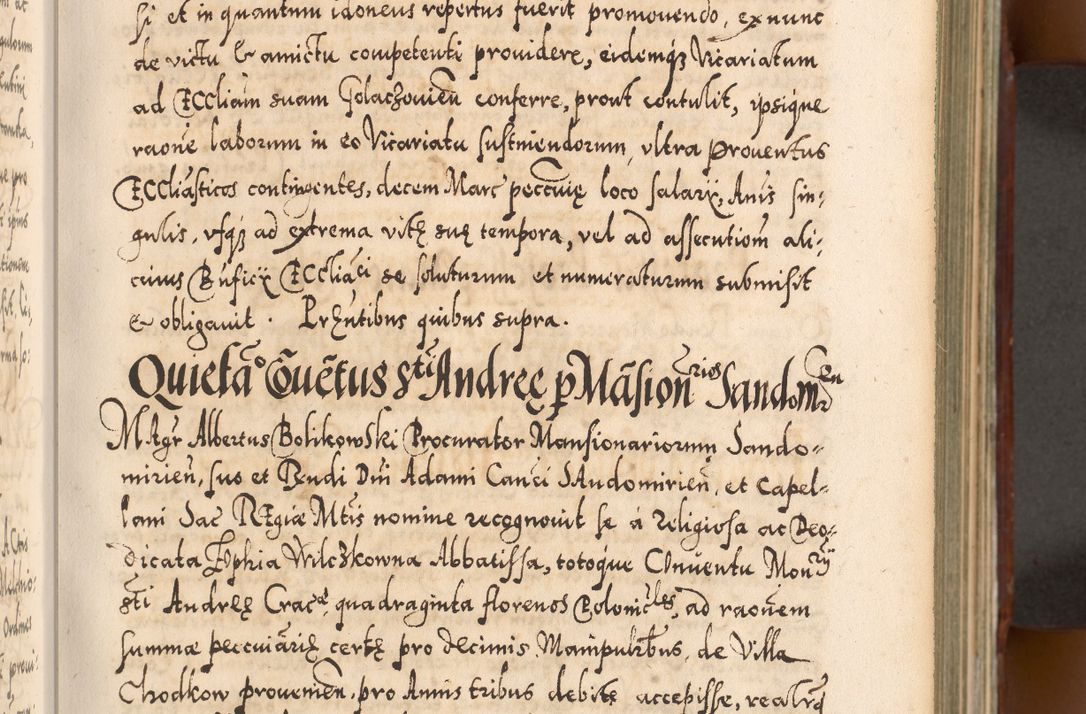 si et in quantum idoneus repertus fuerit promouendo, ex nunc
de victu & amictu competenti providere, eidemq̃ Vicariatum
ad ECCliam suam Golaczouieñ conferre, prout contulit, ipsique
raoñe laborum in eo Vicariatu sustinendorum, vltra Prouentus
ECCliasticos contingentes, decem Marc peccuniȩ loco salarÿ, Anis sin-
gulis, vsq̃ ad extrema vitȩ suȩ tempora, vel ad assecutiom ali-
cuius Bnficÿ ECCliaci se soluturum et numeraturum submisit
& obligauit. PrȜntibus quibus supra.
Quietão Coũetus Sti Andreȩ p Mãsionrios Sandomiren
MAgr Albertus Bolikowski Procurator Mansionariorum Sando-
mirieñ, suo et Rendi Dni Adami Canci SAndomirieñ, et Capel-
lani Sac REgiæ Mtis nomine recognouit se á religiosa ac Deo-
dicata Zophia Wilczkowna Abbatissa, totoque COnuentu Monrÿ
Sti Andreȩ Cracȩ, quadraginta florenos Poloniles, ad raoñem
summæ peccuiariȩ certȩ pro Decimis Manipulibus, de Villa
Chodkow prouenien. pro Annis tribus debitȩ accepisse, realitq̃